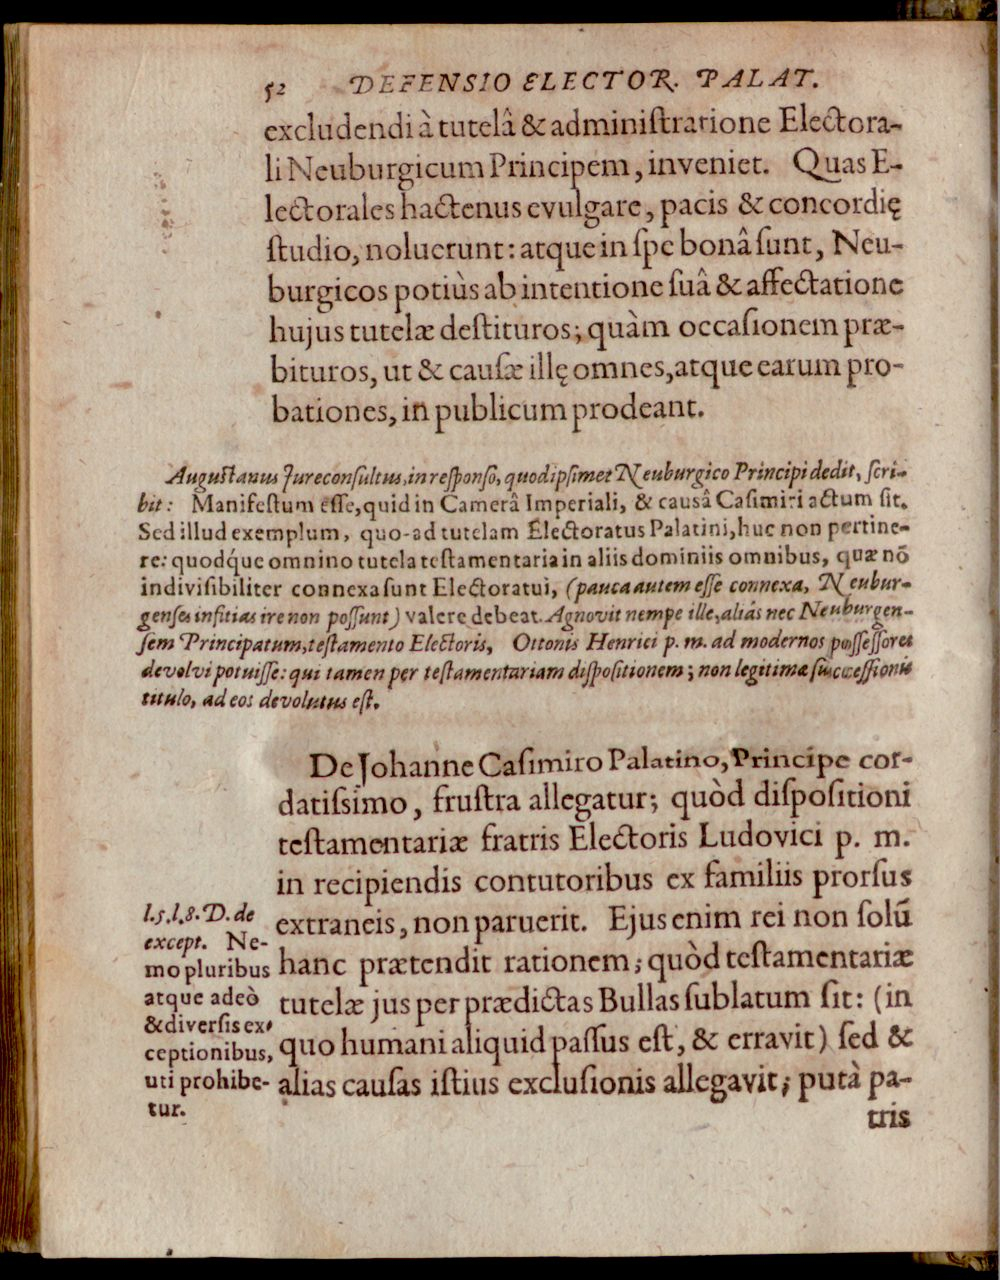 52 DEFENSIO ELECTOR. PALAT.
excludendi à tutelâ & administratione Electora-
li Neuburgicum Principem, inveniet. Quas E-
lectorales hactenus evulgare, pacis & concordię
studio, noluerunt: atque in spe bonâ sunt, Neu-
burgicos potiùs ab intentione suâ & affectatione
hujus tutelæ destituros; quàm occasionem præ-
bituros, ut & causæ illę omnes, atque earum pro-
bationes, in publicum prodeant.
Augustanus Jureconsultus, in responso, quod ipsimet Neuburgico Principi dedit, scri-
bit: Manifestum esse, quid in Camerâ Imperiali, & causâ Casimiri actum sit.
Sed illud exemplum, quo-ad tutelam Electoratus Palatini, huc non pertine-
re: quodq́ue omnino tutela testamentaria in aliis dominiis omnibus, quæ nō
indivisibiliter connexa sunt Electoratui, (pauca autem esse connexa, Neubur-
genses infitias ire non possunt) valere debeat. Agnovit nempe ille, aliàs nec Neuburgen-
sem Principatum, testamento Electoris, Ottonis Henrici p. m. ad modernos possessores
devolvi potuisse: qui tamen per testamentariam dispositionem; non legitimæ successionis
titulo, ad eos devolutus est.
De Johanne Casimiro Palatino, Principe cor-
datissimo, frustra allegatur; quòd dispositioni
testamentariæ fratris Electoris Ludovici p. m.
in recipiendis contutoribus ex familiis prorsus
extraneis, non paruerit. Ejus enim rei non solū
hanc prætendit rationem; quòd testamentariæ
tutelæ jus per prædictas Bullas sublatum sit: (in
quo humani aliquid passus est, & erravit) sed &
alias causas istius exclusionis allegavit; putà pa-
tris
l.5.l.8.D. de
except. Ne-
mo pluribus
atque adeò
& diversis ex-
ceptionibus,
uti prohibe-
tur.